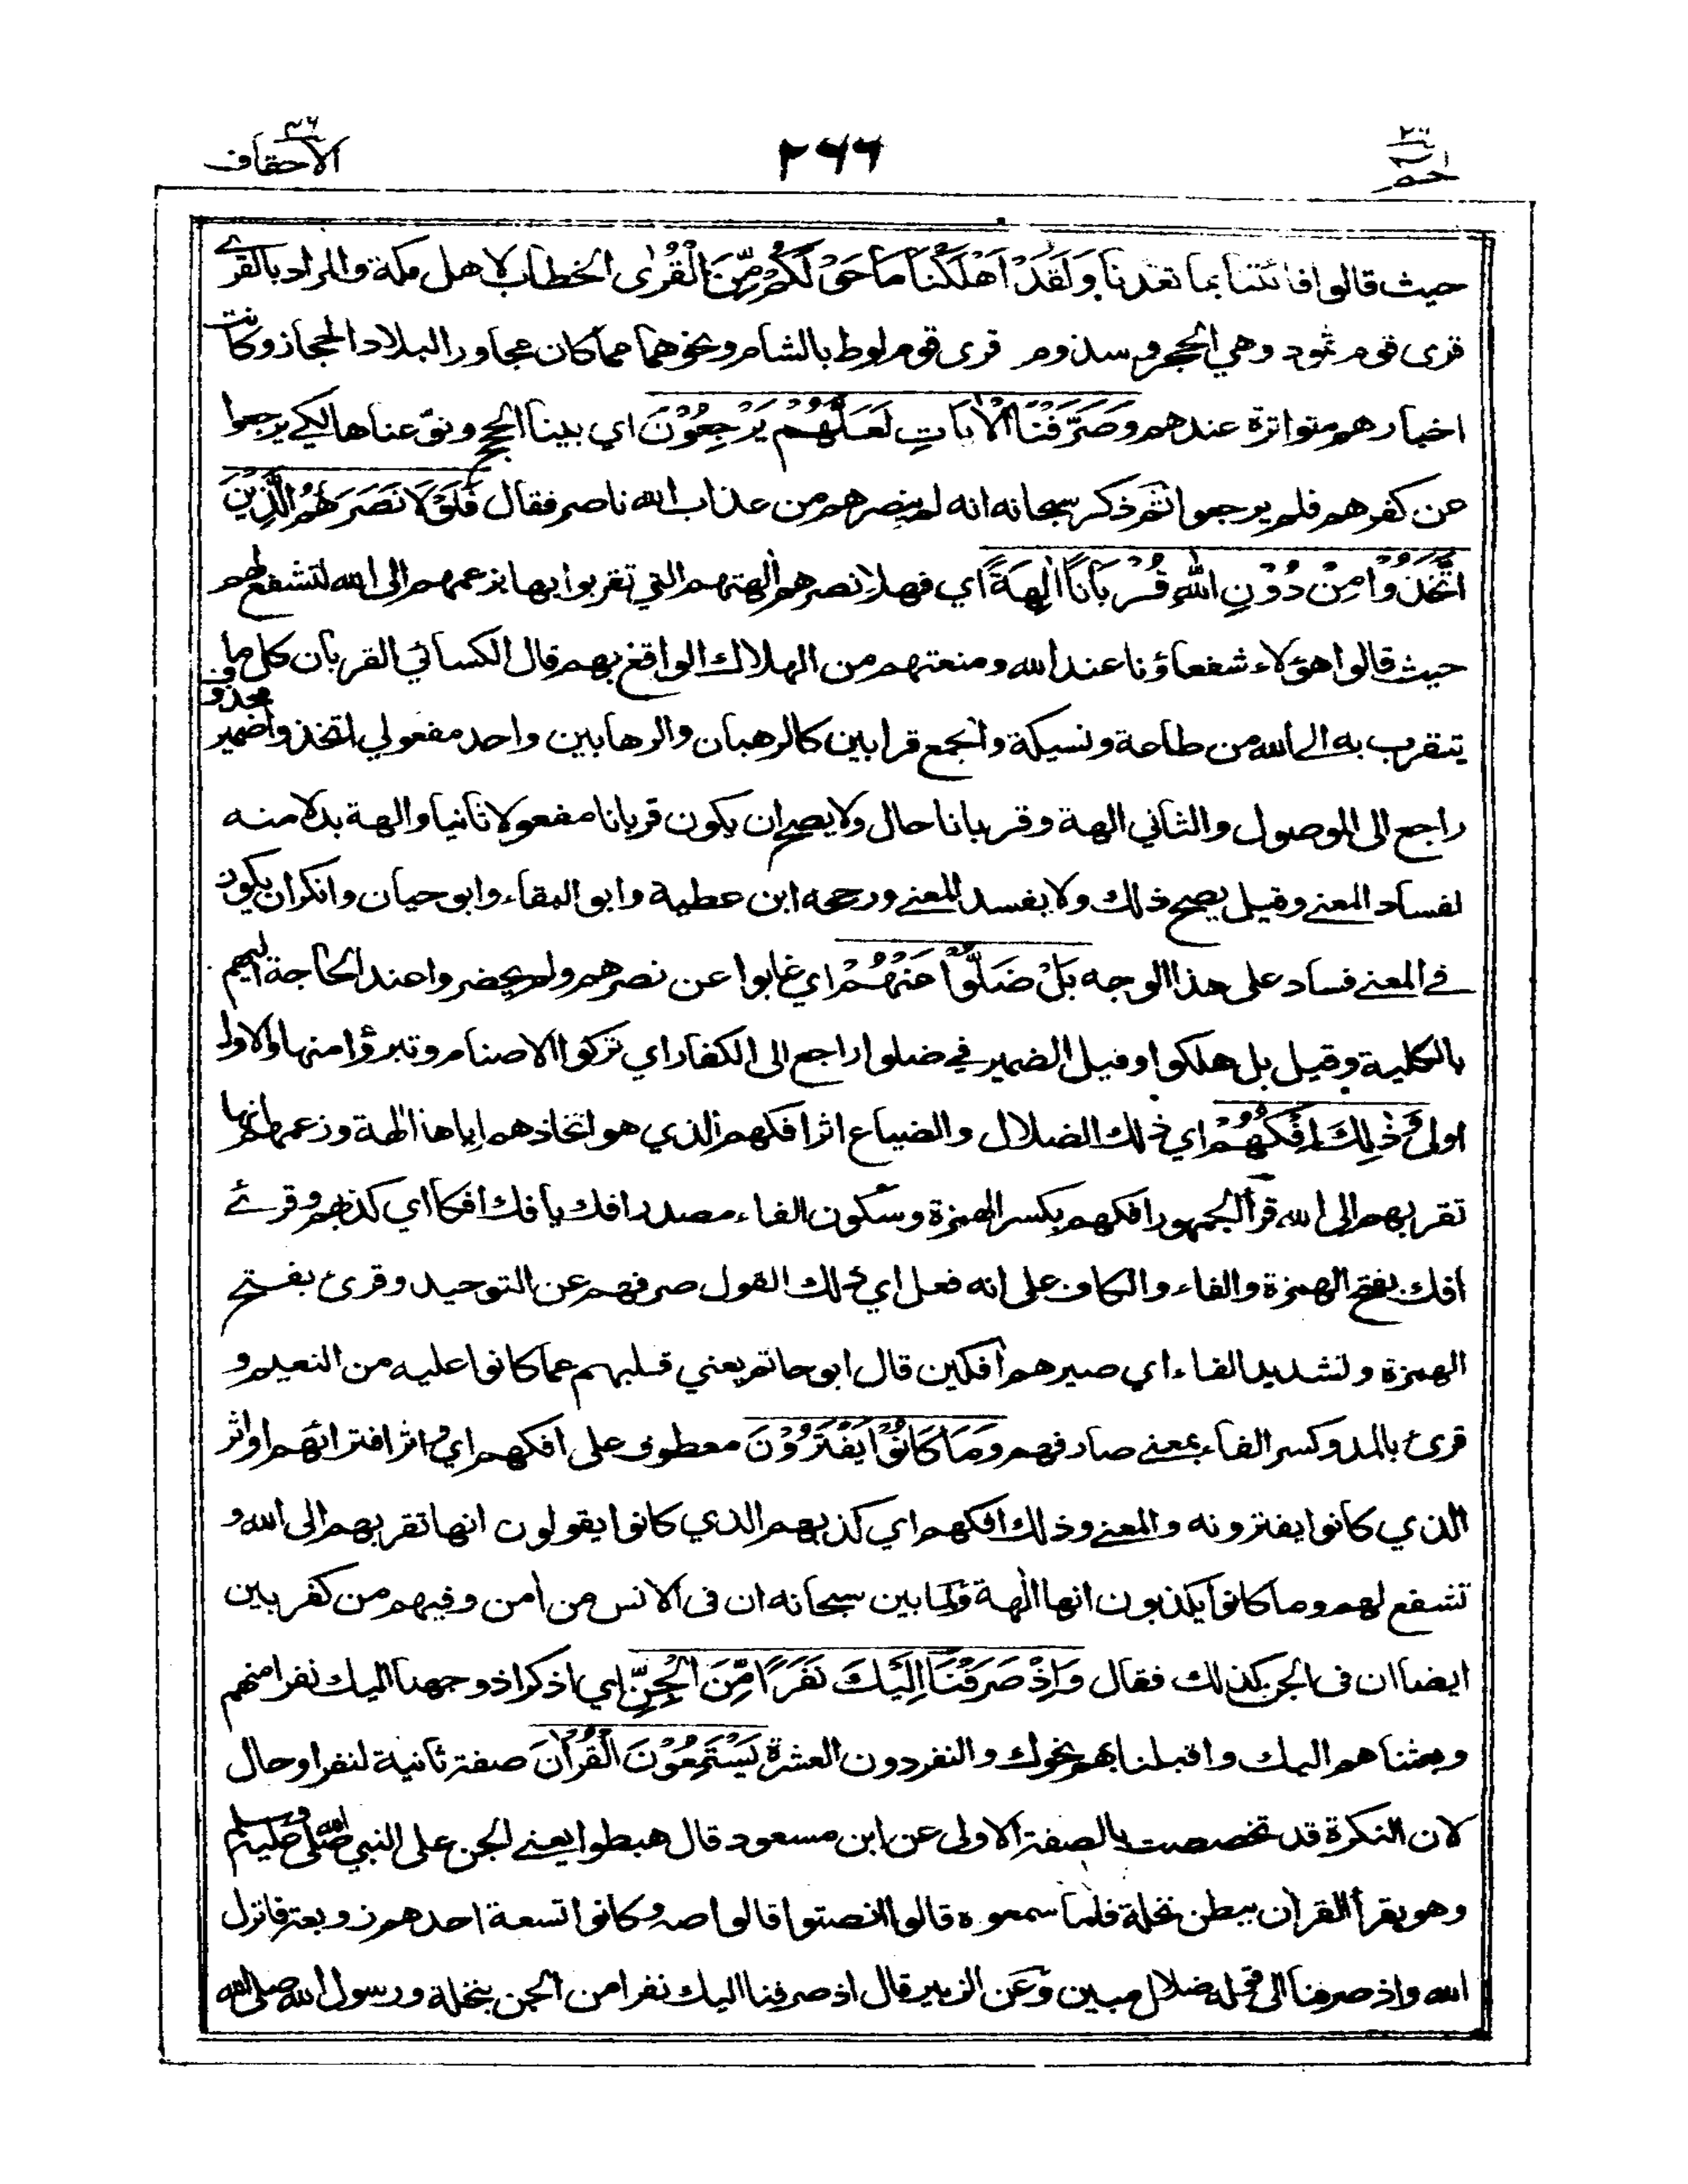 حم ٢٦
٢٦٦
الاحقاف ٤٦
حيث قالوا فأتنا بما تعدنا وَلَقَدْ أَهْلَكْنَا مَا حَوْلَكُمْ مِّنَ الْقُرٰى الخطاب لاهل مكة والمراد بالقرے
قرى قوم ثمود وهي الحجر وسذوم قرى قوم لوط بالشام ونحوهما مما كان مجاور البلاد الحجاز وكانت
اخبارهم متواترة عندهم وَصَرَّفْنَا الْاٰيَاتِ لَعَلَّهُمْ يَرْجِعُوْنَ اي بينا الحجج ونوّعناها لكے يرجعوا
عن كفرهم فلم يرجعوا ثم ذكر سبحانه انه لم ينصرهم من عذاب الله ناصر فقال فَلَوْلَا نَصَرَهُمُ الَّذِيْنَ
اتَّخَذُوْا مِنْ دُوْنِ اللّٰهِ قُرْبَانًا اٰلِهَةً اي فهلا نصرهم اٰلهتهم التي تقربوا بها بزعمهم الى الله لتشفع لهم
حيث قالوا هؤلاء شفعاؤنا عند الله ومنعتهم من الهلاك الواقع بهم قال الكسائي القربان كل ما
يتقرب به الى الله من طاعة ونسيكة والجمع قرابين كالرهبان والرهابين واحد مفعولي اتخذوا ضمير محذوف
راجع الى الموصول والثاني الهة وقربانا حال ولا يصح ان يكون قربانا مفعولا ثانيا والهة بدلا منه
لفساد المعنے وقيل يصح ذلك ولا يفسد المعنے ورجحه ابن عطية وابو البقاء وابو حيان وانكر ان يكون
في المعنے فساد على هذا الوجه بَلْ ضَلُّوْا عَنْهُمْ اي غابوا عن نصرهم ولم يحضروا عند الحاجة اليهم
بالكلية وقيل بل هلكوا وقيل الضمير في ضلوا راجع الى الكفار اي تركوا الاصنام وتبرؤا منها والاول
اولى وَذٰلِكَ اِفْكُهُمْ اي ذلك الضلال والضياع اثر افكهم الذي هو اتخاذهم اياها اٰلهة وزعمهم انها
تقربهم الى الله قرأ الجمهور افكهم بكسر الهمزة وسكون الفاء مصدر افك يافك افكا اي كذبهم وقرئے
افك بفتح الهمزة والفاء والكاف على انه فعل اي ذلك القول صرفهم عن التوحيد وقرئ بفتح
الهمزة وتشديد الفاء اي صيرهم اٰفكين قال ابو حاتم يعني قلبهم عما كانوا عليه من النعيم و
قرئ بالمد وكسر الفاء بمعنے صارفهم وَمَا كَانُوْا يَفْتَرُوْنَ معطوف على افكهم اي واثر افترائهم او اثر
الذي كانوا يفترونه والمعنے وذلك افكهم اي كذبهم الذي كانوا يقولون انها تقربهم الى الله و
تشفع لهم وما كانوا يكذبون انها اٰلهة ولما بين سبحانه ان فى الانس من اٰمن وفيهم من كفر بين
ايضا ان فى الجن كذلك فقال وَاِذْ صَرَفْنَا اِلَيْكَ نَفَرًا مِّنَ الْجِنِّ اي اذكر اذ وجهنا اليك نفرا منهم
وبعثناهم اليك واقبلنا بهم نحوك والنفر دون العشرة يَسْتَمِعُوْنَ الْقُرْاٰنَ صفة ثانية لنفرا وحال
لان النكرة قد تخصصت بالصفة الاولى عن ابن مسعود قال هبطوا يعنے الجن على النبي صلى الله عليه وسلم
وهو يقرأ القراٰن ببطن نخلة فلما سمعوه قالوا انصتوا قالوا صه وكانوا تسعة احدهم زوبعة فانزل
الله واذ صرفنا الى قوله ضلال مبين وعن الزبير قال اذ صرفنا اليك نفرا من الجن بنخلة ورسول الله صلى الله